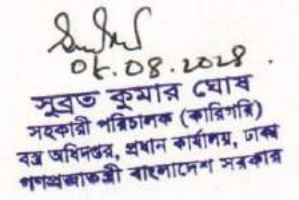 ০৮.০৪.২০২৪
সুব্রত কুমার ঘোষ
সহকারী পরিচালক (কারিগরি)
বস্ত্র অধিদপ্তর, প্রধান কার্যালয়, ঢাকা
গণপ্রজাতন্ত্রী বাংলাদেশ সরকার